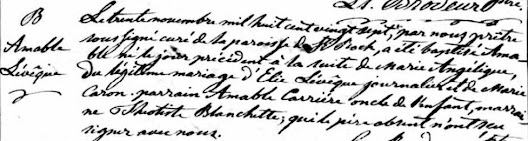 Brodeur ptre
B
Amable
Lévêque
Le trente novembre mil huit cent vingt sept, par nous prêtre
soussigné curé de la paroisse de St Roch, a été baptisé Ama-
ble né le jour précédent à la suite de Marie Angélique,
du légitime mariage d'Elie Lévêque journalier et de Marie
Caron. parrain Amable Carrière oncle de l'enfant, marrai-
ne Théotiste Blanchette; qui le père absent n'ont su
signer avec nous.